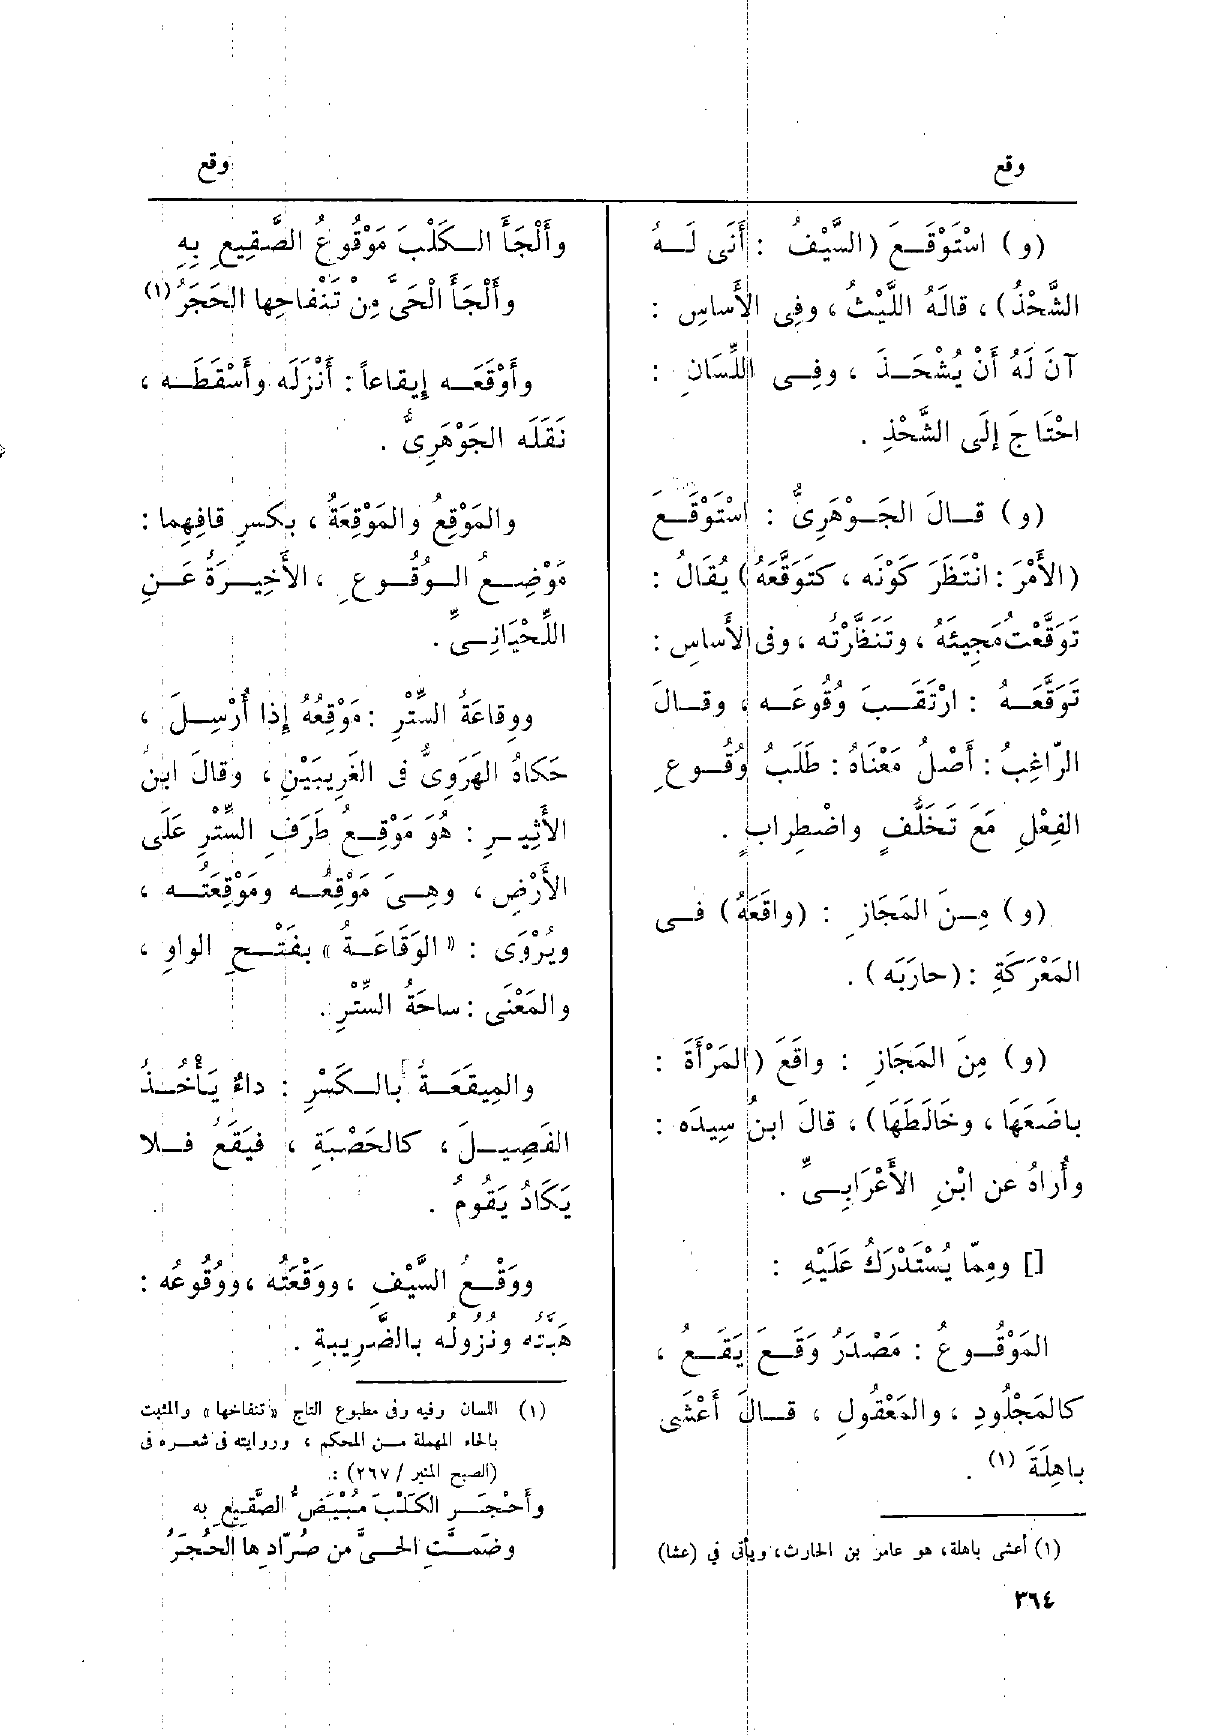 وقع
وقع
(و) اسْتَوْقَعَ (السَّيْفُ : أَنَى لَهُ
الشَّحْذُ) ، قالَهُ اللَّيْثُ ، وفِى الأَساسِ :
آنَ لَهُ أَنْ يُشْحَذَ ، وفِى اللِّسَانِ :
احْتَاجَ إِلَى الشَّحْذِ .
(و) قالَ الجَوْهَرِىُّ : اسْتَوْقَعَ
(الأَمْرَ : انْتَظَرَ كَوْنَه ، كتَوَقَّعَهُ) يُقَالُ :
تَوَقَّعْتُ مَجِيئَهُ ، وتَنَظَّرْتُه ، وفى الأَساسِ :
تَوَقَّعَهُ : ارْتَقَبَ وُقُوعَه ، وقالَ
الرّاغِبُ : أَصْلُ مَعْنَاهُ : طَلَبُ وُقُوعِ
الفِعْلِ مَعَ تَخَلُّفٍ واضْطِرابٍ .
(و) مِنَ المَجَازِ : (واقَعَهُ) فى
المَعْرَكَةِ : (حارَبَه) .
(و) مِنَ المَجَازِ : واقَعَ (المَرْأَةَ :
باضَعَهَا ، وخَالَطَهَا) ، قالَ ابنُ سِيدَه :
وأُراهُ عن ابْنِ الأَعْرَابِىِّ .
[] ومِمّا يُسْتَدْرَكُ عَلَيْهِ :
المَوْقُوعُ : مَصْدَرُ وَقَعَ يَقَعُ ،
كالمَجْلُودِ ، والمَعْقُولِ ، قالَ أَعْشَى
باهِلَةَ (١) .
(١) أعشى باهلة، هو عامر بن الحارث، ويأتى في (عشا)
وأَلْجَأَ الكَلْبَ مَوْقُوعُ الصَّقِيعِ بِهِ
وأَلْجَأَ الْحَىَّ مِنْ تَنْفاحِها الحَجَرُ (١)
وأَوْقَعَه إِيقاعاً : أَنْزَلَه وأَسْقَطَه ،
نَقَلَه الجَوْهَرِىُّ .
والمَوْقِعُ والمَوْقِعَةُ ، بكسرِ قافِهِما :
مَوْضِعُ الوُقُوعِ ، الأَخِيرَةُ عَنِ
اللِّحْيَانِىِّ .
ووِقاعَةُ السِّتْرِ : مَوْقِعُهُ إِذا أُرْسِلَ ،
حَكاهُ الهَرَوِىُّ فى الغَرِيبَيْنِ ، وقالَ ابنُ
الأَثِيرِ : هُوَ مَوْقِعُ طَرَفِ السِّتْرِ عَلَى
الأَرْضِ ، وهِىَ مَوْقِعُه ومَوْقِعَتُه ،
ويُرْوَى : «الوَقَاعَةُ» بفَتْحِ الواوِ ،
والمَعْنَى : ساحَةُ السِّتْرِ .
والمِيقَعَةُ بالكَسْرِ : داءٌ يَأْخُذُ
الفَصِيلَ ، كالحَصْبَةِ ، فيَقَعُ فلا
يَكَادُ يَقُومُ .
ووَقْعُ السَّيْفِ ، ووَقْعَتُه ، ووُقُوعُه :
هَبَّتُه ونُزُولُه بالضَّرِيبةِ .
(١) اللسان وفيه وفى مطبوع التاج «تنفاخها» والمثبت
بالحاء المهملة من المحكم ، وروايته فى شعره فى
(الصبح المنير / ٢٦٧) :
وأَحْجَرَ الكَلْبَ مُبْيَضُّ الصَّقِيعِ به
وضَمَّتِ الحىَّ من صُرّادِها الحُجَرُ
٣٦٤